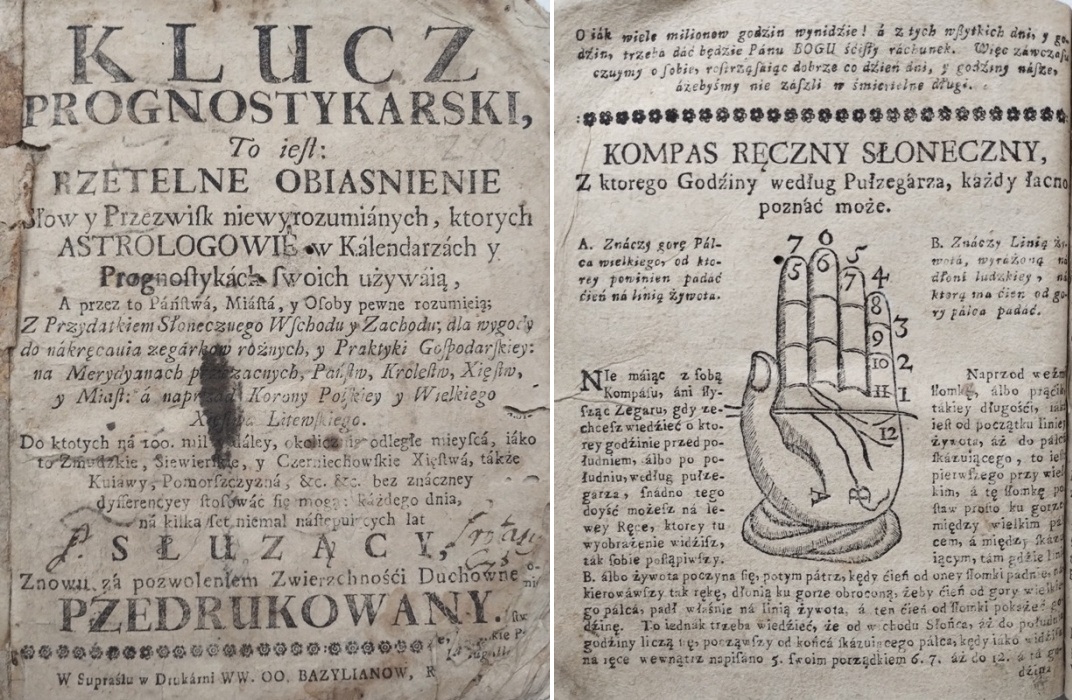 KLUCZ
PROGNOSTYKARSKI,
To ieſt:
RZETELNE OBIASNIENIE
Słow y Przezwiſk niewyrozumiánych, ktorych
ASTROLOGOWIE w Kálendarzách y
Prognoſtykách ſwoich używáią,
A przez to Páńſtwá, Miáſtá, y Oſoby pewne rozumieią;
Z Przydatkiem Słonecznego Wſchodu y Zachodu; dla wygody
do nákręcania zegárkow rożnych, y Praktyki Goſpodarſkiey:
na Merydyanach Państw, Kroleſtw, Xięſtw,
y Miaſt: á naprzod Korony Polſkiey y Wielkiego
Xięſtwa Litewſkiego.
Do ktotych ná 100. mil dáley, okolicznie odległe mieyſcá, iáko
to Zmudzkie, Siewierſkie, y Czerniechowſkie Xięſtwá, tákże
Kuiáwy, Pomorſzczyzná, &c. &c. bez znáczney
dyfferencyey ſtoſowáć ſię mogą: każdego dnia,
ná kilka ſet niemal náſtępuiących lat
SŁUZĄCY,
Znowu zá pozwoleniem Zwierzchnośći Duchowne
PRZEDRUKOWANY.
W Supraślu w Drukárni WW. OO. BAZYLIANOW, R
O iák wiele milionow godzin wynidzie! á z tych wſzytkich dni, y go-
dźin, trzeba dáć będzie Pánu BOGU śćiſły ráchunek. Więc záwczaſu
czuymy o ſobie, roſtrząſaiąc dobrze co dźień dni, y godźiny náſze,
áżebyśmy nie záſzli w śmiertelne długi.
KOMPAS RĘCZNY SŁONECZNY,
Z ktorego Godźiny według Pułzegárza, każdy łacno
poznáć może.
A. Znáczy gorę Pál-
ca wielkiego, od kto-
rey powinien padáć
ćień ná linią żywota.
B. Znáczy Linią ży-
wotá, wyráżoną ná
dłoni ludzkiey, ná
ktorą ma ćien od go-
ry pálca padáć.
7 6 5 4 3 2 1
5 6 7 8 9 10 11 12
A B
NIe máiąc z ſobą
Kompáſu, áni ſły-
ſząc Zegaru, gdy ze-
chceſz wiedźieć o kto-
rey godźinie przed po-
łudniem, álbo po po-
łudniu, według pułze-
garza, ſnádno tego
doyść możeſz ná le-
wey Ręce, ktorey tu
wyobrażenie widźiſz,
ták ſobie poſtąpiwſzy.
Naprzod weźm
ſłomkę, álbo prąćik
tákiey długośći, iák
ieſt od początku liniey
żywotá, aż do pálca
ſkázuiącego, to ieſt
pierwſzego przy wiel-
kim, á tę ſłomkę po-
ſtaw proſto ku gorze
między wielkim pál-
cem, á między ſkázu-
iącym, tám gdźie linia
B. álbo żywota poczyna ſię, potym pátrz, kędy ćień od oney ſłomki padnie, ná-
kierowáwſzy ták rękę, dłonią ku gorze obroconą, żeby ćień od gory wielkie-
go pálcá, padł właśnie ná linią żywotá, á ten ćień od ſłomki pokáże go-
dźinę. To iednak trzeba wiedźieć, że od wſchodu Słońca, áż do południa
godźiny liczą ſię, począwſzy od końcá ſkázuiącego pálca, kędy iáko widźiſz
na ręce wewnątrz napiſano 5. ſwoim porządkiem 6. 7. áż do 12. á tá go-
dźina